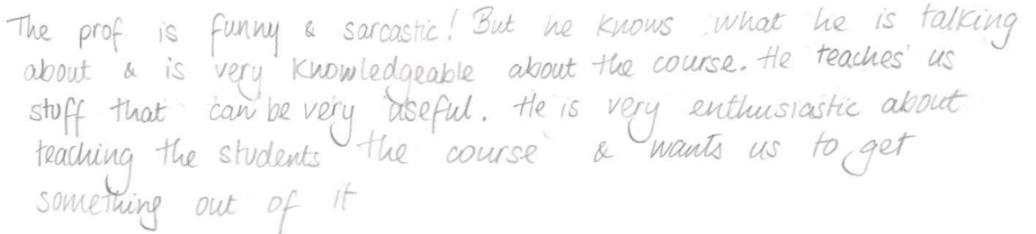 The prof is funny & sarcastic! But he knows what he is talking
about & is very knowledgeable about the course. He teaches us
stuff that can be very useful. He is very enthusiastic about
teaching the students the course & wants us to get
something out of it